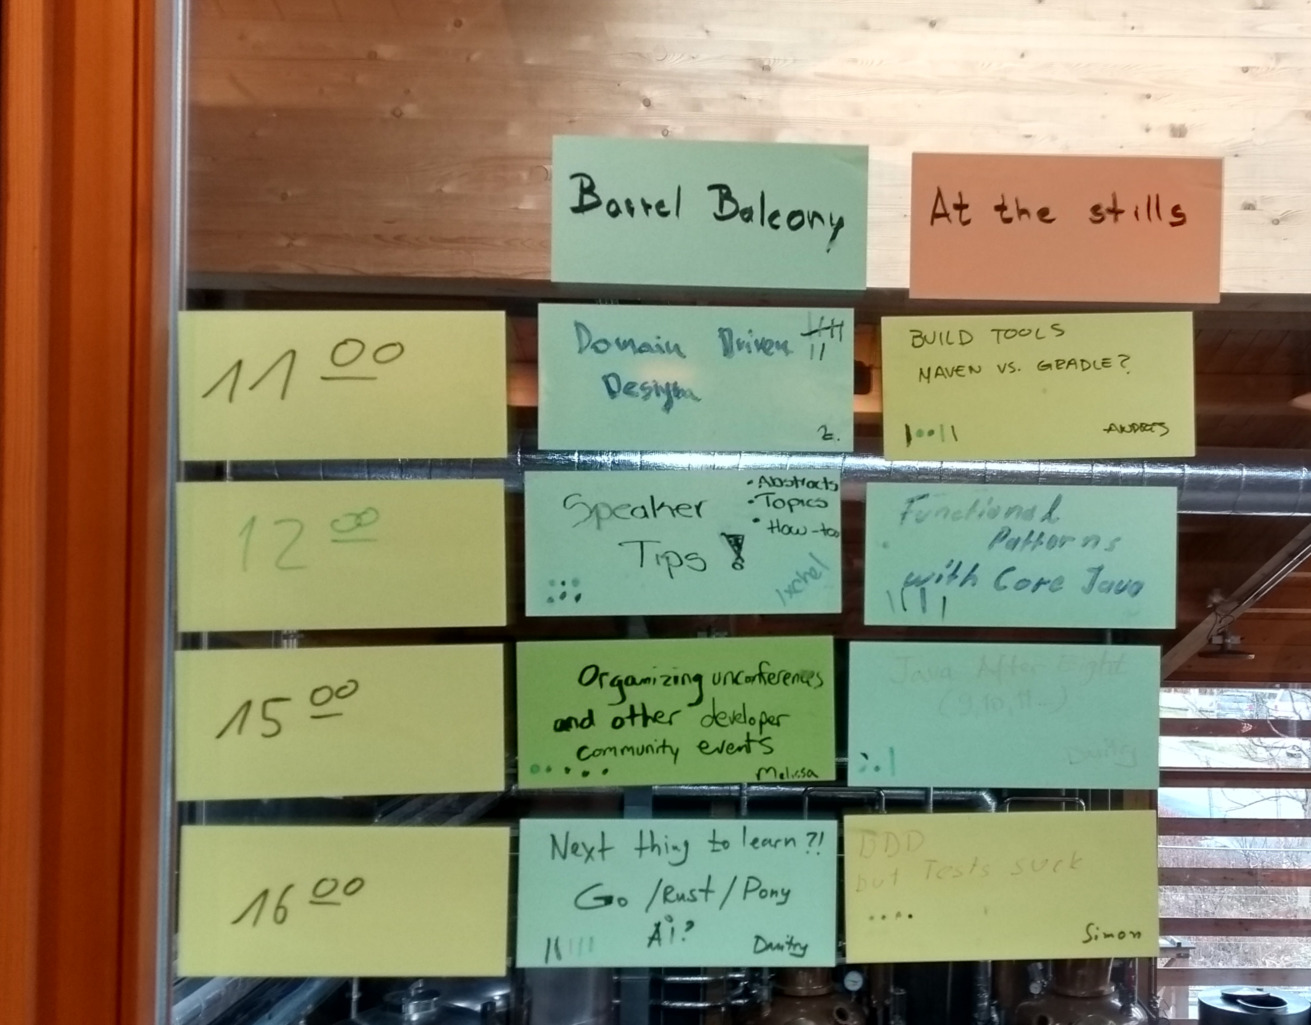 Barrel Balcony
At the stills
11 00
Domain Driven
Design
Z.
BUILD TOOLS
MAVEN VS. GRADLE?
ANDRES
12 00
Speaker
Tips !
• Abstracts
• Topics
• How-tos
Ixchel
Functional
Patterns
with Core Java
15 00
Organizing unconferences
and other developer
community events
Melissa
Java After Eight
(9, 10, 11...)
Dmitry
16 00
Next thing to learn?!
Go / Rust / Pony
Ai?
Dmitry
BDD
but Tests suck
Simon